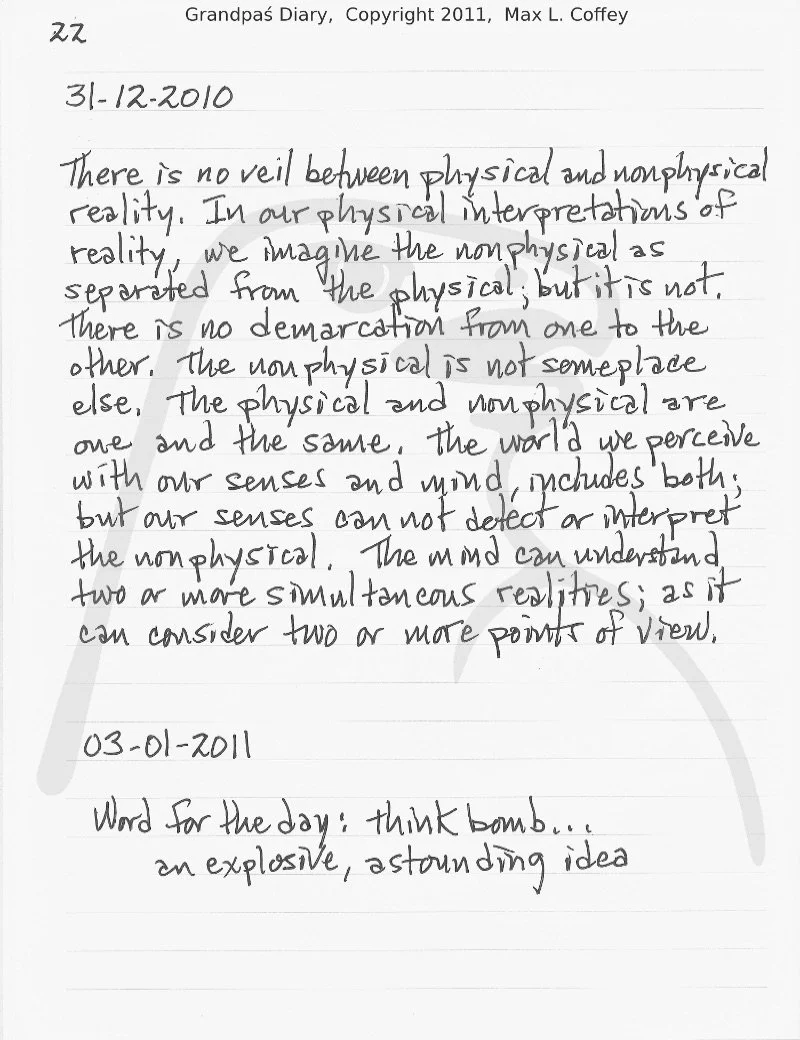 Grandpaś Diary, Copyright 2011, Max L. Coffey
22
31-12-2010
There is no veil between physical and nonphysical
reality. In our physical interpretations of
reality, we imagine the nonphysical as
separated from the physical; but it is not.
There is no demarcation from one to the
other. The nonphysical is not someplace
else. The physical and nonphysical are
one and the same. The world we perceive
with our senses and mind, includes both;
but our senses can not detect or interpret
the nonphysical. The mind can understand
two or more simultaneous realities; as it
can consider two or more points of view.
03-01-2011
Word for the day: think bomb...
an explosive, astounding idea